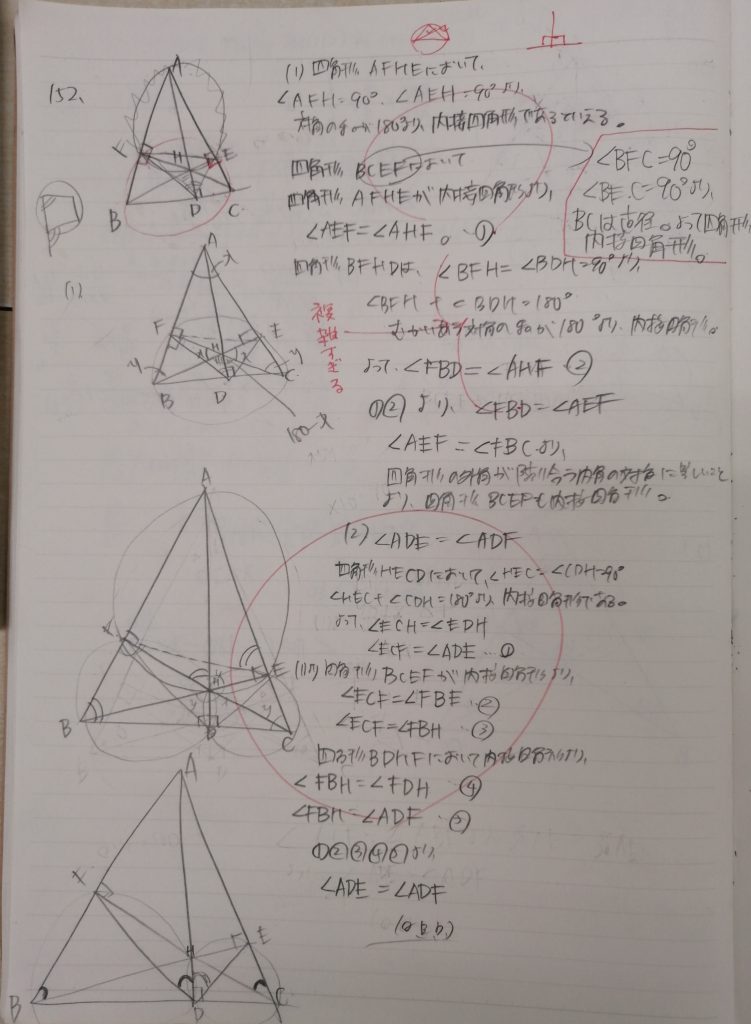 152、
(1) 四角形 AFHEにおいて、
∠AFH=90°. ∠AEH=90°より
対角の和が180°より 内接四角形であるといえる。
四角形 BCEFにおいて
四角形 AFHEが内接四角形より、
∠AEF=∠AHF。①
∠BFC=90°
∠BEC=90°より、
BCは直径。よって四角形
内接四角形。
(1)
四角形BFHDは、∠BFH=∠BDH=90°より、
∠BFH+∠BDH=180°
むかいあう対角の和が180°より、内接四角形。
複雑すぎる
よって、∠FBD=∠AHF ②
①②より、∠FBD=∠AEF
∠AEF=∠FBCより、
四角形の外角が隣り合う内角の対角に等しいこと
より、四角形BCEFも内接四角形。
(2) ∠ADE=∠ADF
四角形HECDにおいて、∠HEC=∠CDH=90°
∠HEC+∠CDH=180°より、内接四角形である。
よって、∠ECH=∠EDH
∠ECF=∠ADE…①
(1)より 四角形BCEFが内接四角形より、
∠ECF=∠FBE ②
∠ECF=∠FBH ③
四角形BDHFにおいて内接四角形より、
∠FBH=∠FDH ④
∠FBH=∠ADF ⑤
①②③④⑤より
∠ADE=∠ADF
A
F
H
E
B
D
C
A
x
F
E
H
y
y
B
D
C
180-x
A
F
E
H
x
y
y
B
D
C
A
F
H
E
B
D
C